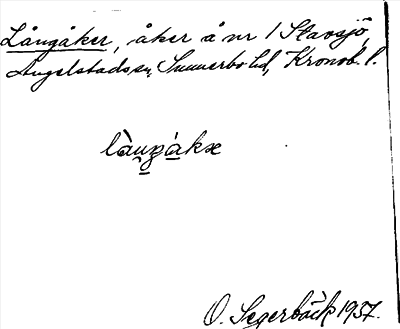 Långåker, åker å nr 1 Stavsjö,
Angelstads sn, Sunnerbo hd, Kronob. l.
làŋgàkæ
O. Segerbäck 1937.